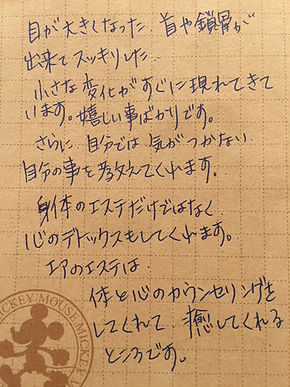 目が大きくなった 首や鎖骨が
出来てスッキリした
小さな変化がすぐに現れてきて
います。嬉しい事ばかりです。
さらに 自分では 気がつかない
自分の事を教えてくれます。
身体のエステだけではなく
心のデトックスもしてくれます。
エアのエステは
体と心のカウンセリングを
してくれて 癒してくれる
ところです。
MICKEY MOUSE MICKEY